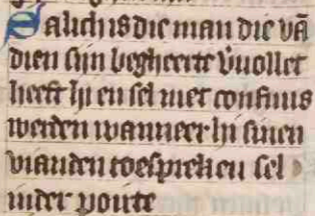 Salich is die man die vā
dien sijn begheerte v̄uollet
heeft hi en sel niet confuus
werden wanneer hi sinen
vianden toespreken sel
inder poirte